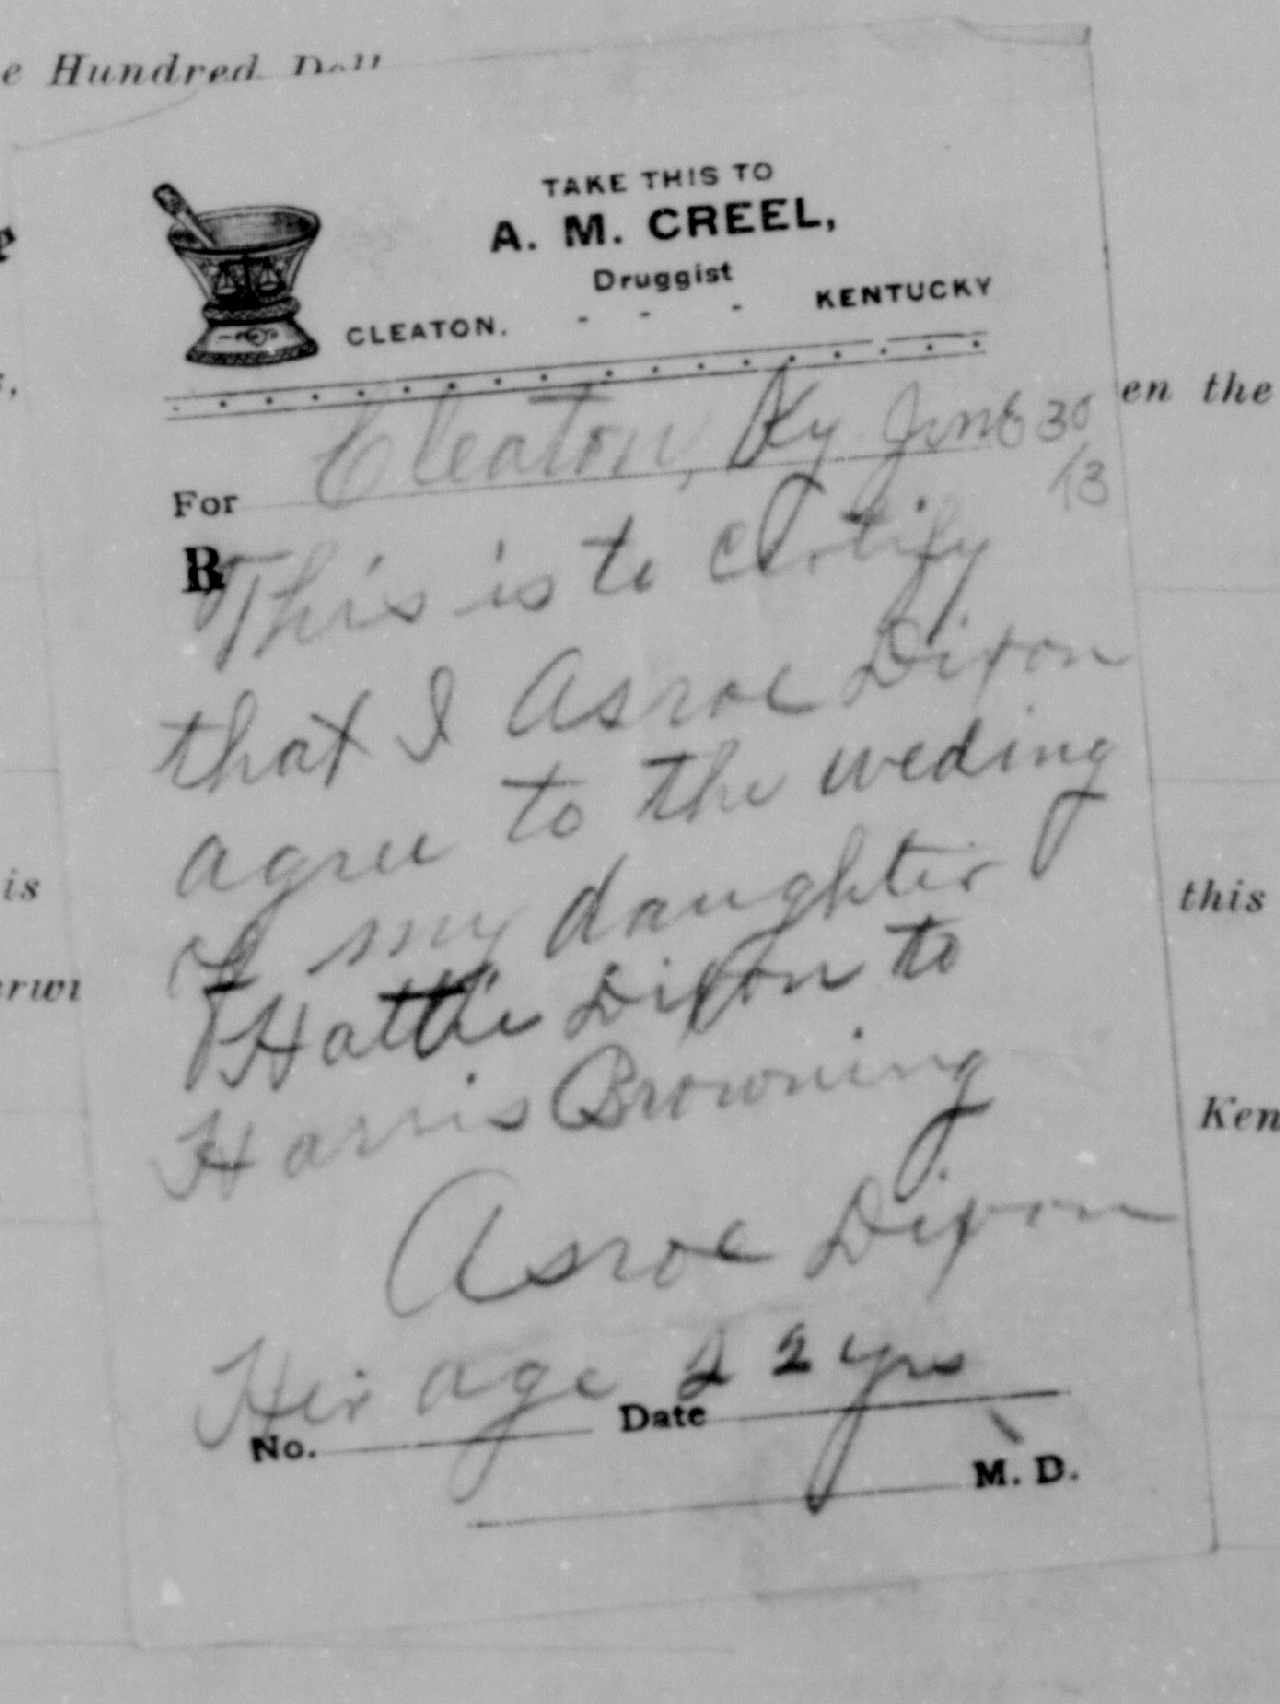 e Hundred Doll
TAKE THIS TO
A. M. CREEL,
Druggist
CLEATON. - - - KENTUCKY
Cleaton, Ky June 30
13
For
℞ This is to certify
that I Asroe Dixon
agree to the weding
of my daughter
Hattie Dixon to
Harris Browning
Asroe Dixon
Her age 22 yrs
No. Date
M. D.
en the
is
this
erwi
Ken